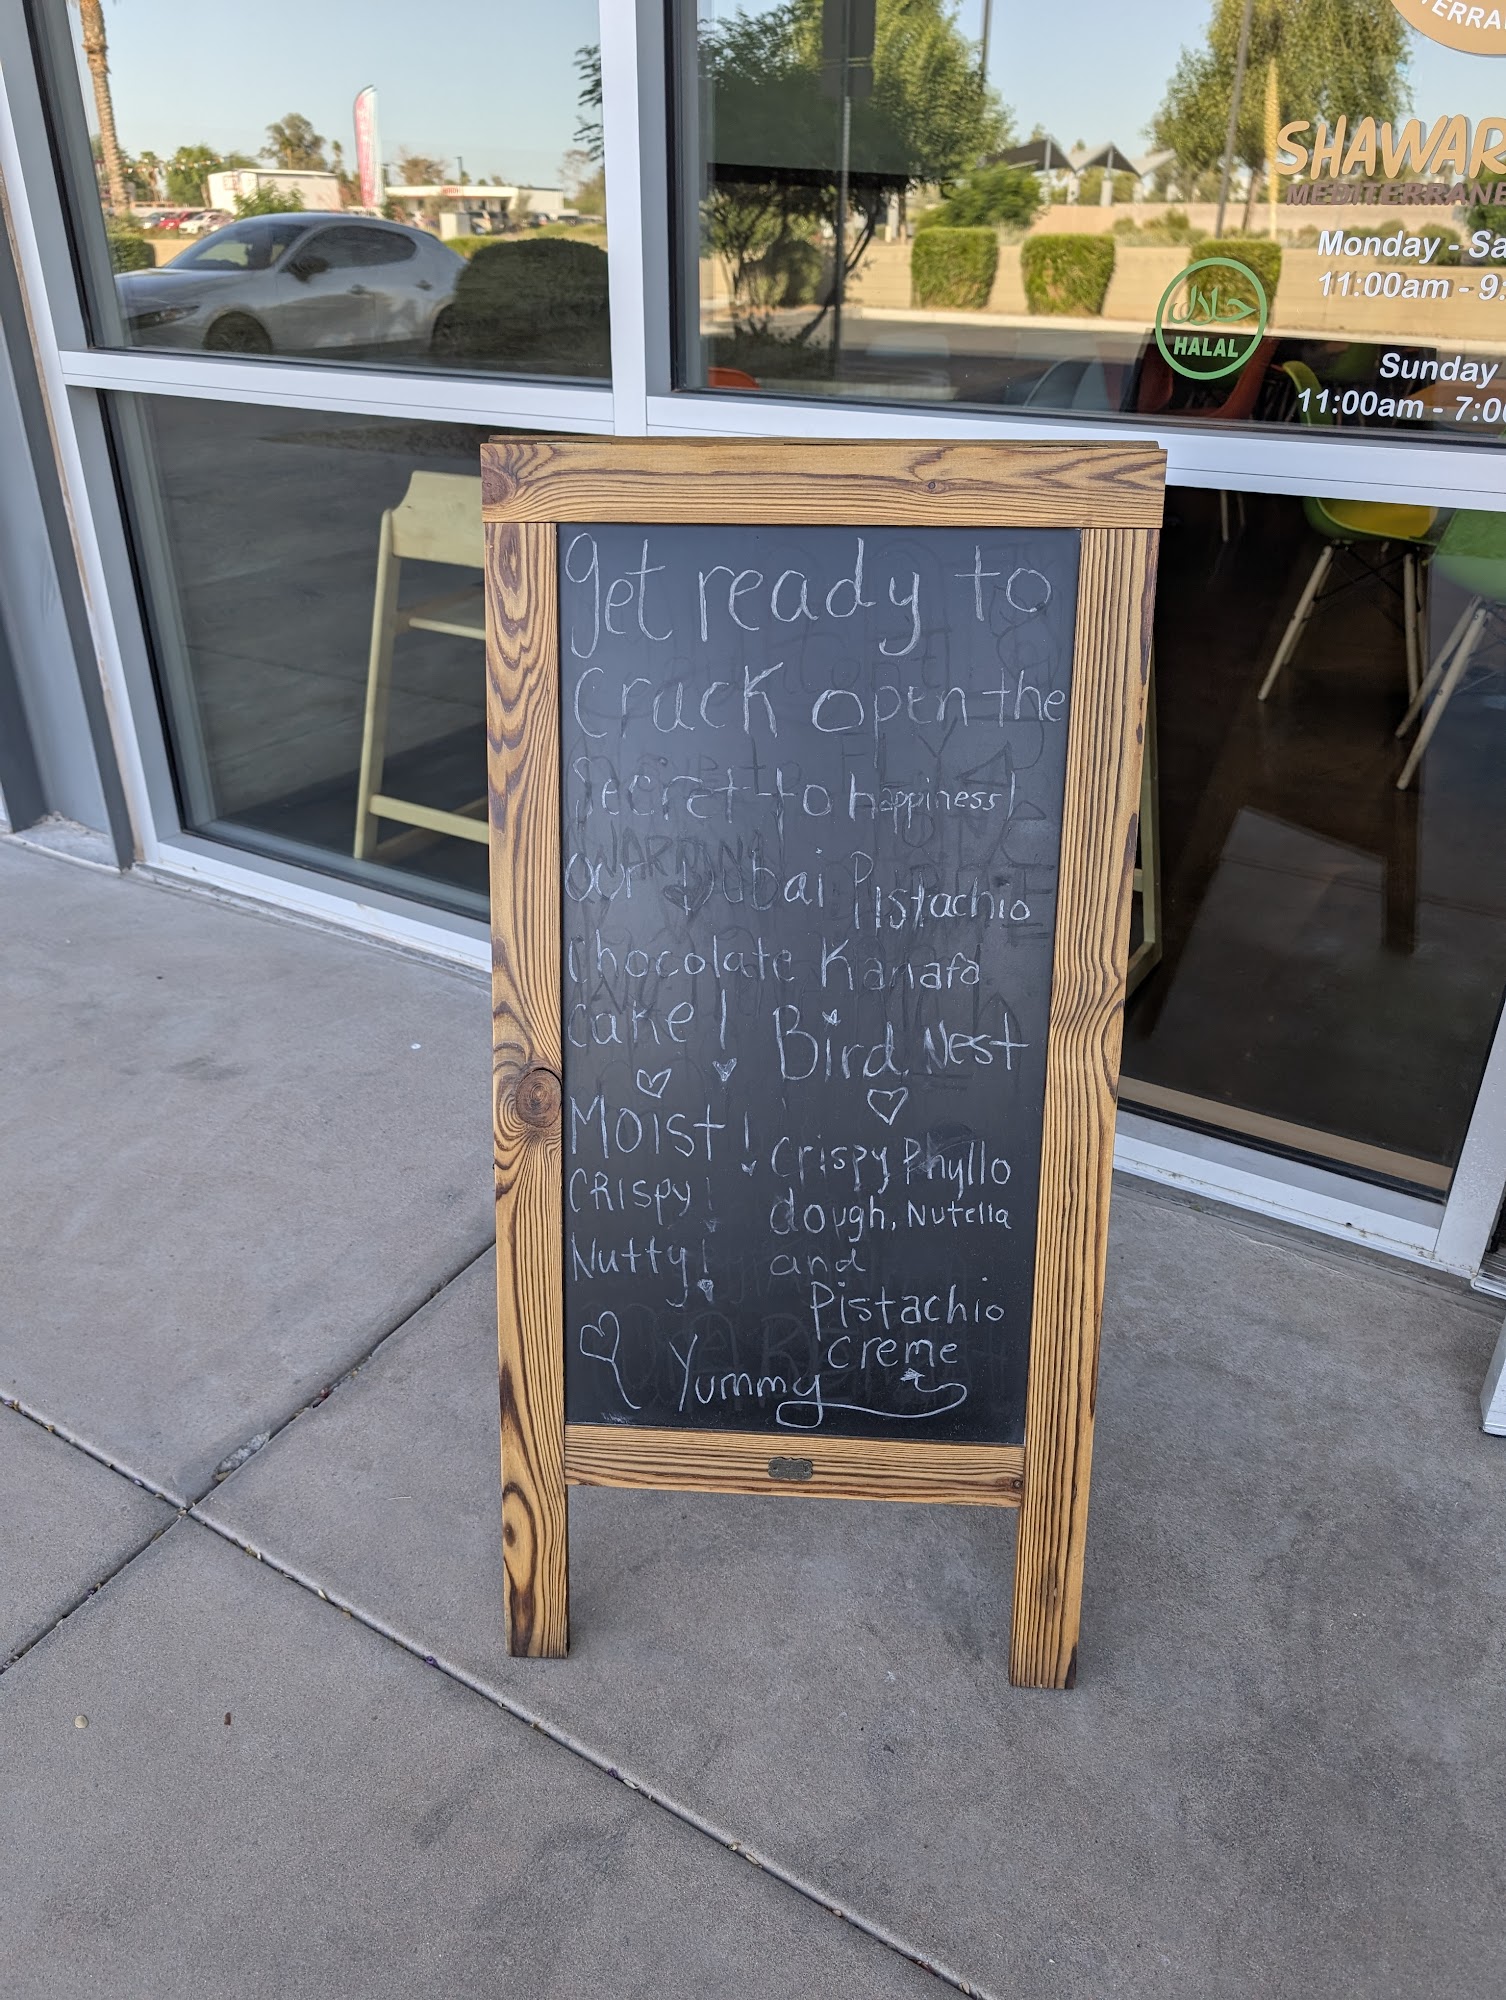 TERRA
SHAWAR
MEDITERRANE
Monday - Sa
11:00am - 9:
حلال
HALAL
Sunday
11:00am - 7:00
get ready to
Crack open the
Secret to happiness!
Our Dubai Pistachio
Chocolate Kanafa
cake!
Bird Nest
Moist!
Crispy!
Nutty!
Crispy Phyllo
dough, Nutella
and
Pistachio
creme
Yummy